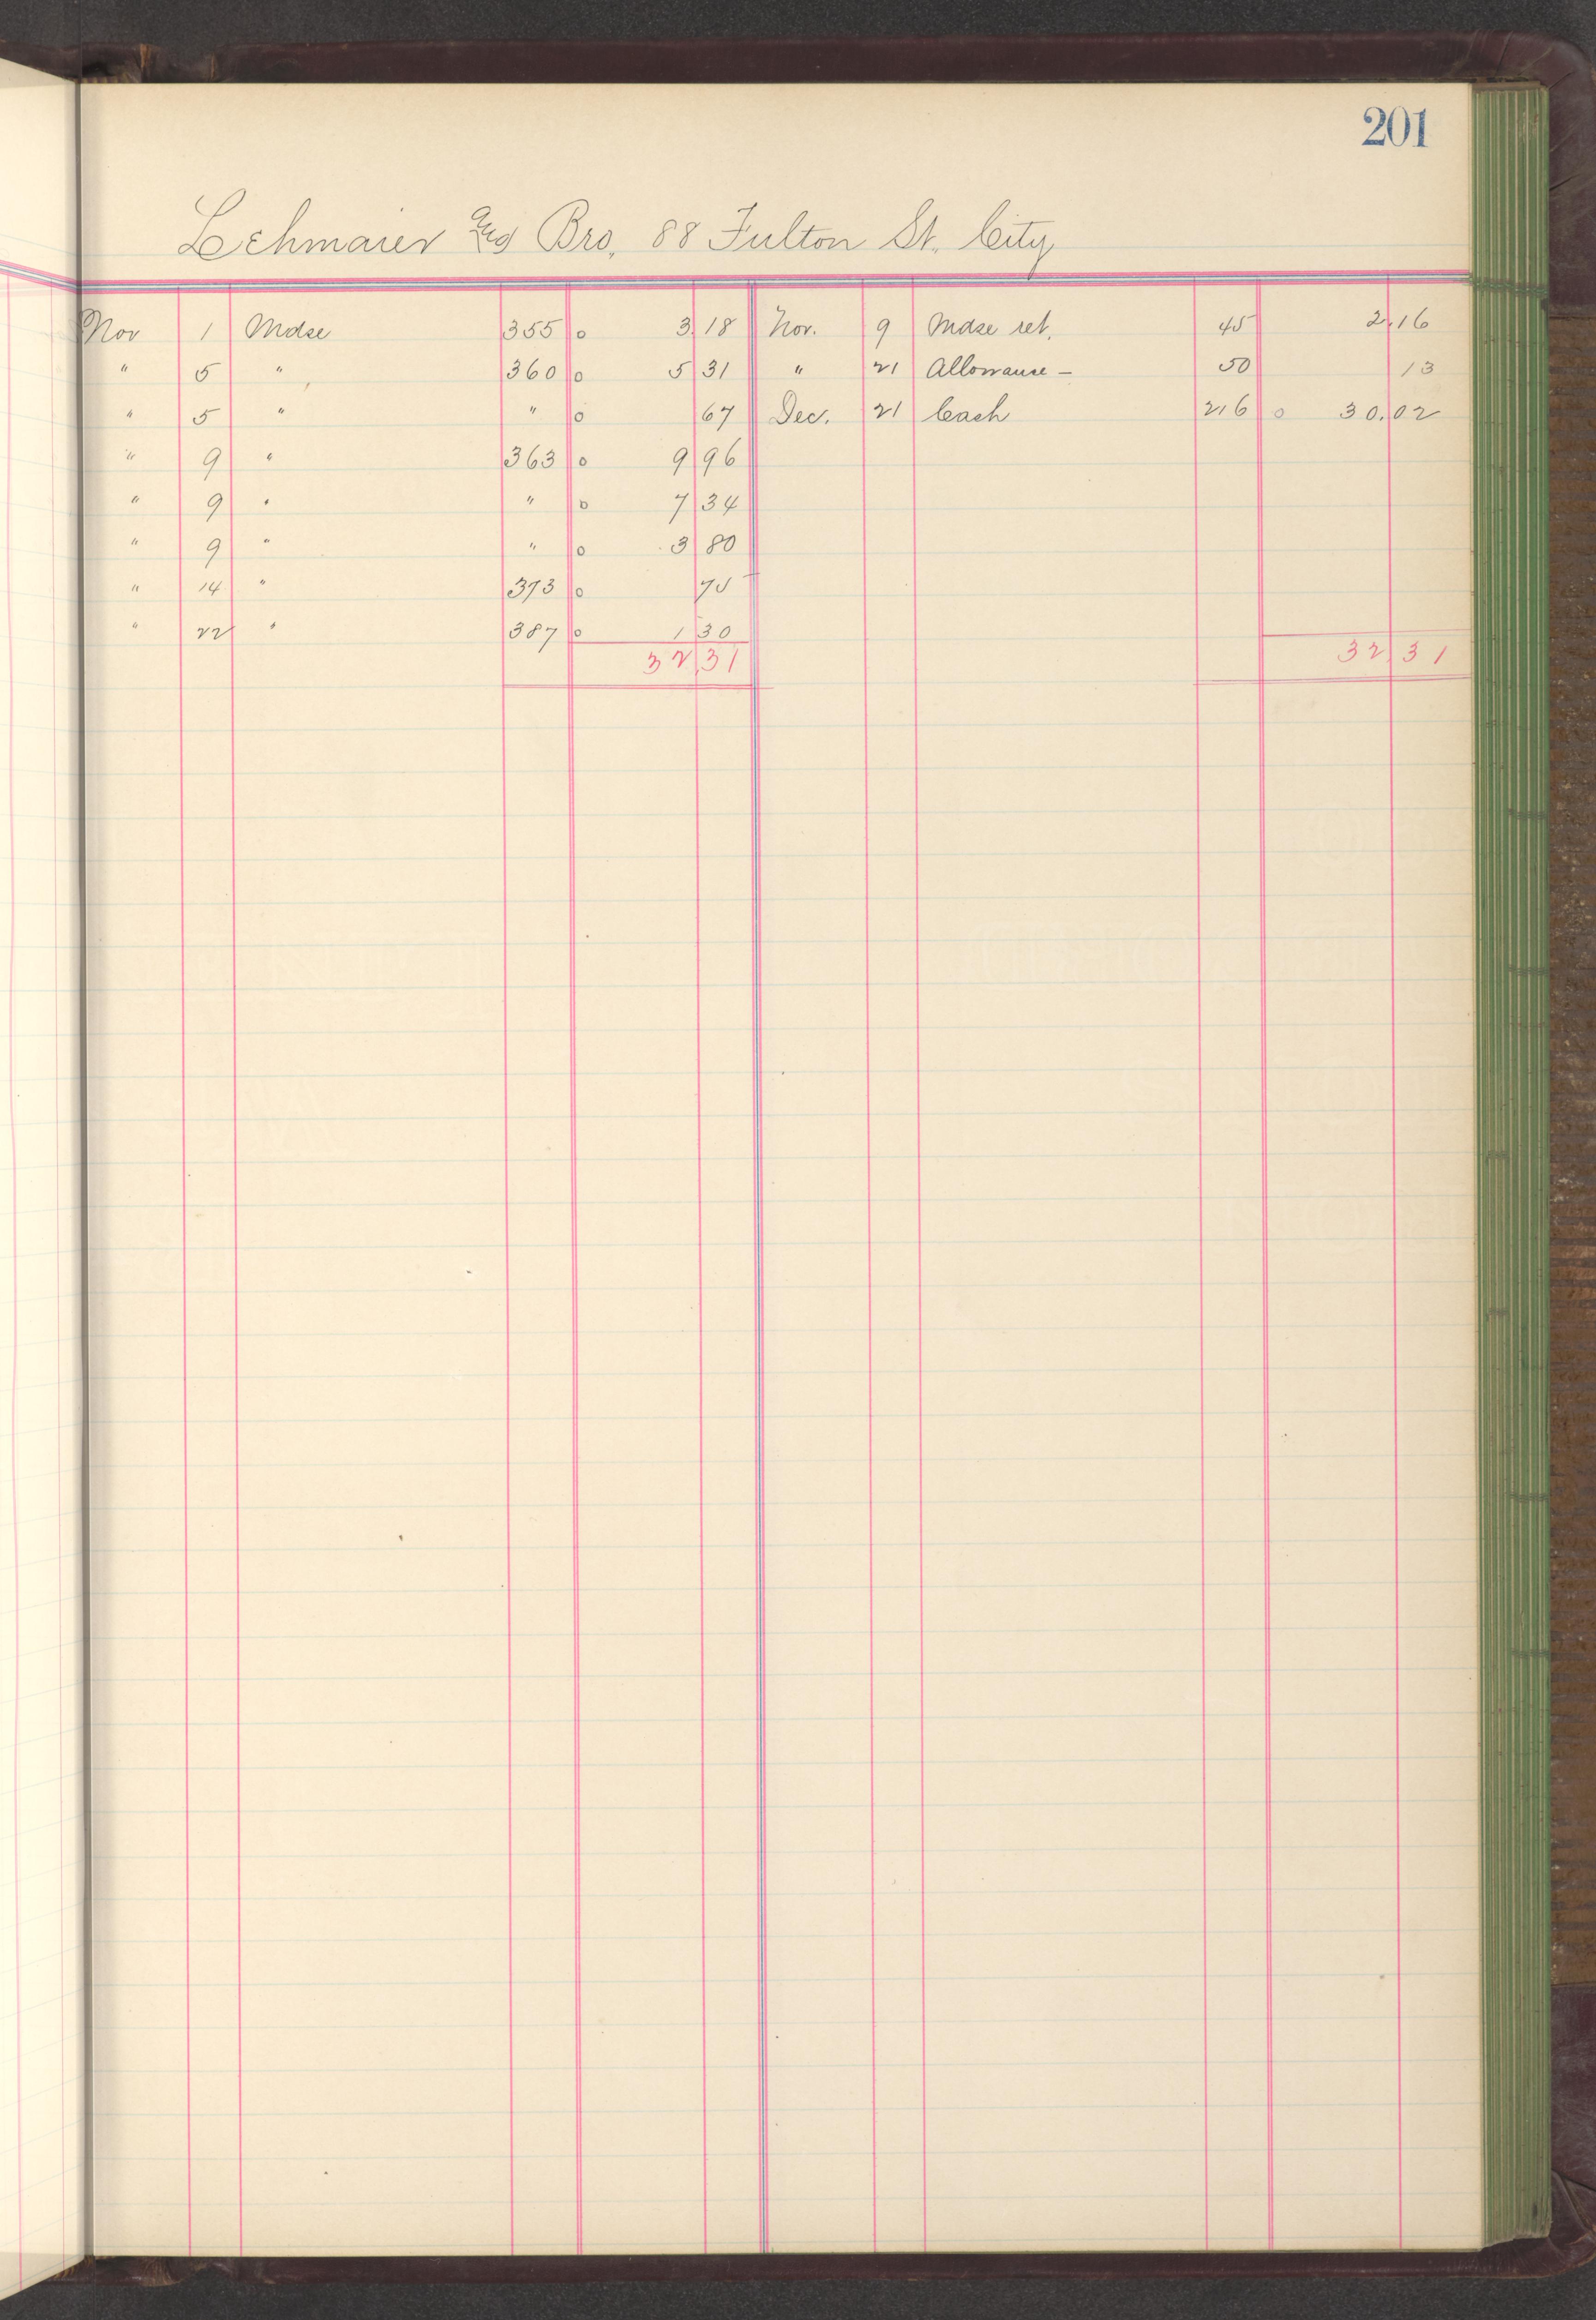 201
Lehmaier and Bro, 88 Fulton St. City
Nov 1 Mdse 355 o 3.18 Nov. 9 Mdse ret. 45 2.16
" 5 " 360 o 5 31 " 21 Allowance - 50 13
" 5 " " o 67 Dec. 21 Cash 216 o 30.02
" 9 " 363 o 9 96
" 9 " " o 7 34
" 9 " " o 3 80
" 14 " 373 o 75
" 22 " 387 o 1 30
32.31 32.31